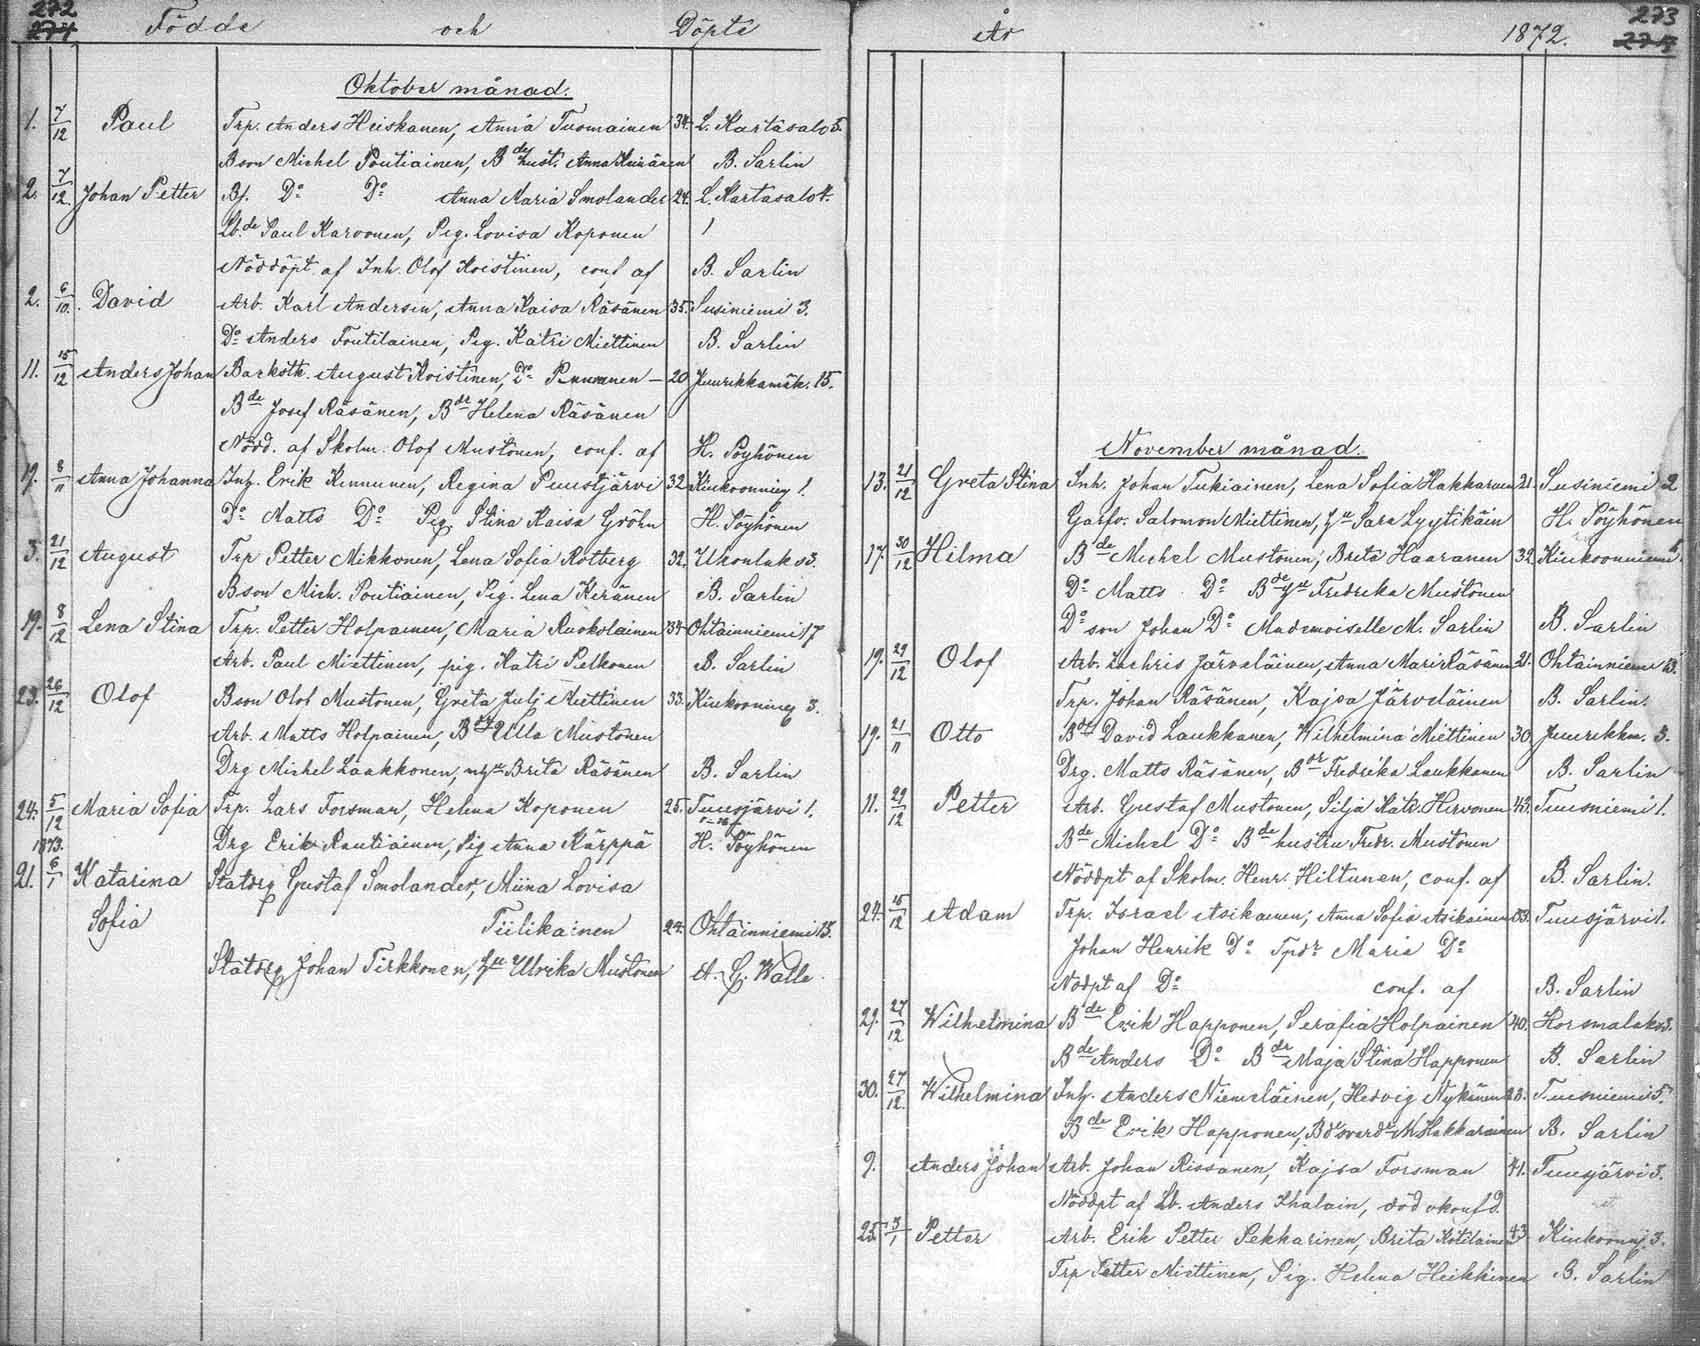 272
274
Födde och Döpte
Oktober månad.
1. 7/12 Paul Trp. Anders Heiskanen, Anna Tuomainen 34. L. Kartasalo 5.
Bson Michel Poutiainen, Bde hust. Anna B. Sarlin
2. 7/12 Johan Petter Bf. Do Do Anna Maria Smolander 24. L. Kartasalo 4.
Lbde Paul Karvonen, Pig. Lovisa Koponen
Nöddöpt af Inh. Olof Koistinen, conf af B. Sarlin
2. 6/10. David Arb. Karl Andersin, Anna Kaisa Räsänen 35. Susiniemi 3.
Do Anders Foutilainen, Pig. Katri Miettinen B. Sarlin
11. 15/12 Anders Johan Backstk. August Koistinen, Do - 20 Juurikkamäk. 15.
Bde Josef Räsänen, Bdr Helena Räsänen
Nödd. af Skolm. Olof Mustonen, conf. af H. Pöyhönen
19. 8/11 Anna Johanna Inh. Erik Kinnunen, Regina Puustjärvi 32 1.
Do Matts Do Pig. Stina Kaisa Gröhn H. Pöyhönen
5. 21/12 August Trp Petter Mikkonen, Lena Sofia Rotberg 32. Ukonlaks 3.
Bson Mich. Poutiainen, Pig. Lena Keränen B. Sarlin
19. 8/12 Lena Stina Trp. Petter Holpainen, Maria Ruokolainen 34 Ohtainniemi 17
Arb. Paul Miettinen, pig. Katri Pelkonen B. Sarlin
23. 26/12 Olof Bson Olof Mustonen, Greta Julj Miettinen 33. 3.
Arb. Matts Holpainen, Ulla Mustonen
Drg Michel Laakkonen, Brita Räsänen B. Sarlin
24. 5/12 Maria Sofia Trp. Lars Forsman, Helena Koponen 25. Tuusjärvi 1.
1873. Drg Erik Rautiainen, Pig Anna Kärppä H. Pöyhönen
21. 6/1 Katarina Statdrg Gustaf Smolander, Miina Lovisa
Sofia Tiilikainen 24. Ohtainniemi 15.
Statdrg Johan Tirkkonen, Ulrika Mustonen A. G. Walle
273
275
År 1872.
November månad.
13. 21/12 Greta Stina Inh. Johan Tukiainen, Lena Sofia Hakkarainen 21. Susiniemi 2
Garfv. Salomon Miettinen, Sara Lyytikäin H. Pöyhönen
17. 30/12 Hilma Bde Michel Mustonen, Brita Haaranen 32 Kiukoonniemi
Do Matts Do Fredrika Mustonen
Do son Johan Do Mademoiselle M. Sarlin B. Sarlin
19. 29/12 Olof Arb. Zachris Järveläinen, Anna Mari Räsänen 21. Ohtainniemi 13.
Trp. Johan Räsänen, Kajsa Järveläinen B. Sarlin.
19. 21/11 Otto Bde David Laukkanen, Wilhelmina Miettinen 30 Juurikkm. 5.
Drg. Matts Räsänen, Bdr Fredrika Laukkanen B. Sarlin
11. 29/12 Petter Arb. Gustaf Mustonen, Silja Katr. Hirvonen 43. Tuusniemi 1.
Bde Michel Do Bde hustru Fredr. Mustonen
Nöddpt af Skolm. Henr. Hiltunen, conf. af B. Sarlin.
24. 15/12 Adam Trp. Israel Asikainen, Anna Sofia Asikainen 33. Tuusjärvi 1.
Johan Henrik Do Tpdr Maria Do
Nödpt af Do conf. af B. Sarlin
29. 27/12 Wilhelmina Bde Erik Happonen, Serafia Holpainen 40. Horsmalaks 3.
Bde Anders Do Bdr Maja Stina Happonen B. Sarlin
30. 27/12. Wilhelmina Inh. Anders Niemeläinen, Hedvig Nykänen 23. Tuusniemi 5.
Bde Erik Happonen, M Hakkarainen B. Sarlin
9. Anders Johan Arb. Johan Rissanen, Kajsa Forsman 41. Tuusjärvi 3.
Nöddpt af Lb. Anders Ihalain, död okonfd.
25. 3/1 Petter Arb. Erik Petter Pekkarinen, Brita Kötilainen 43 3.
Trp Petter Miettinen, Pig. Helena Heikkinen B. Sarlin